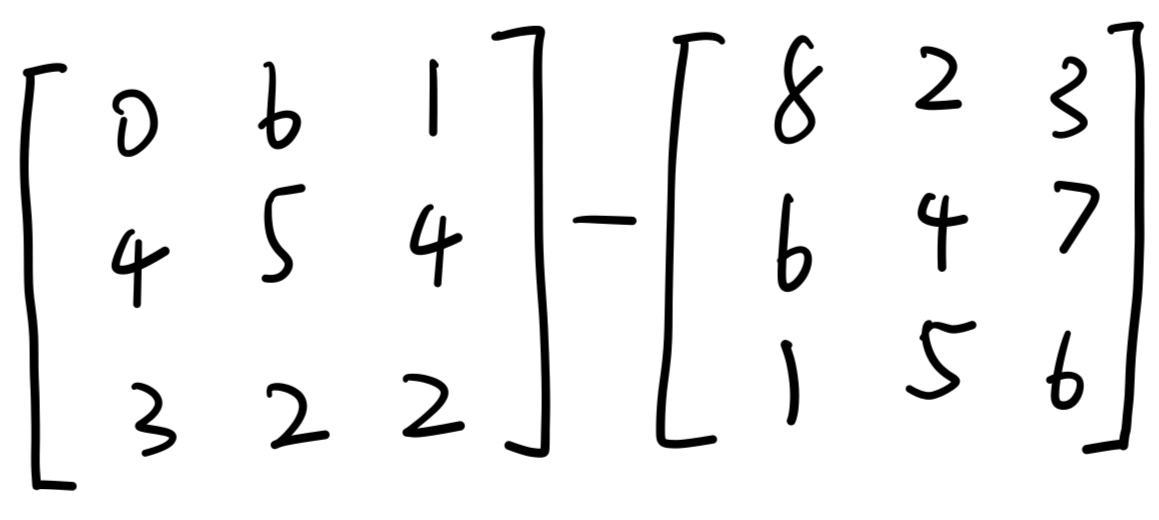 [0 6 1
4 5 4
3 2 2] - [8 2 3
6 4 7
1 5 6]